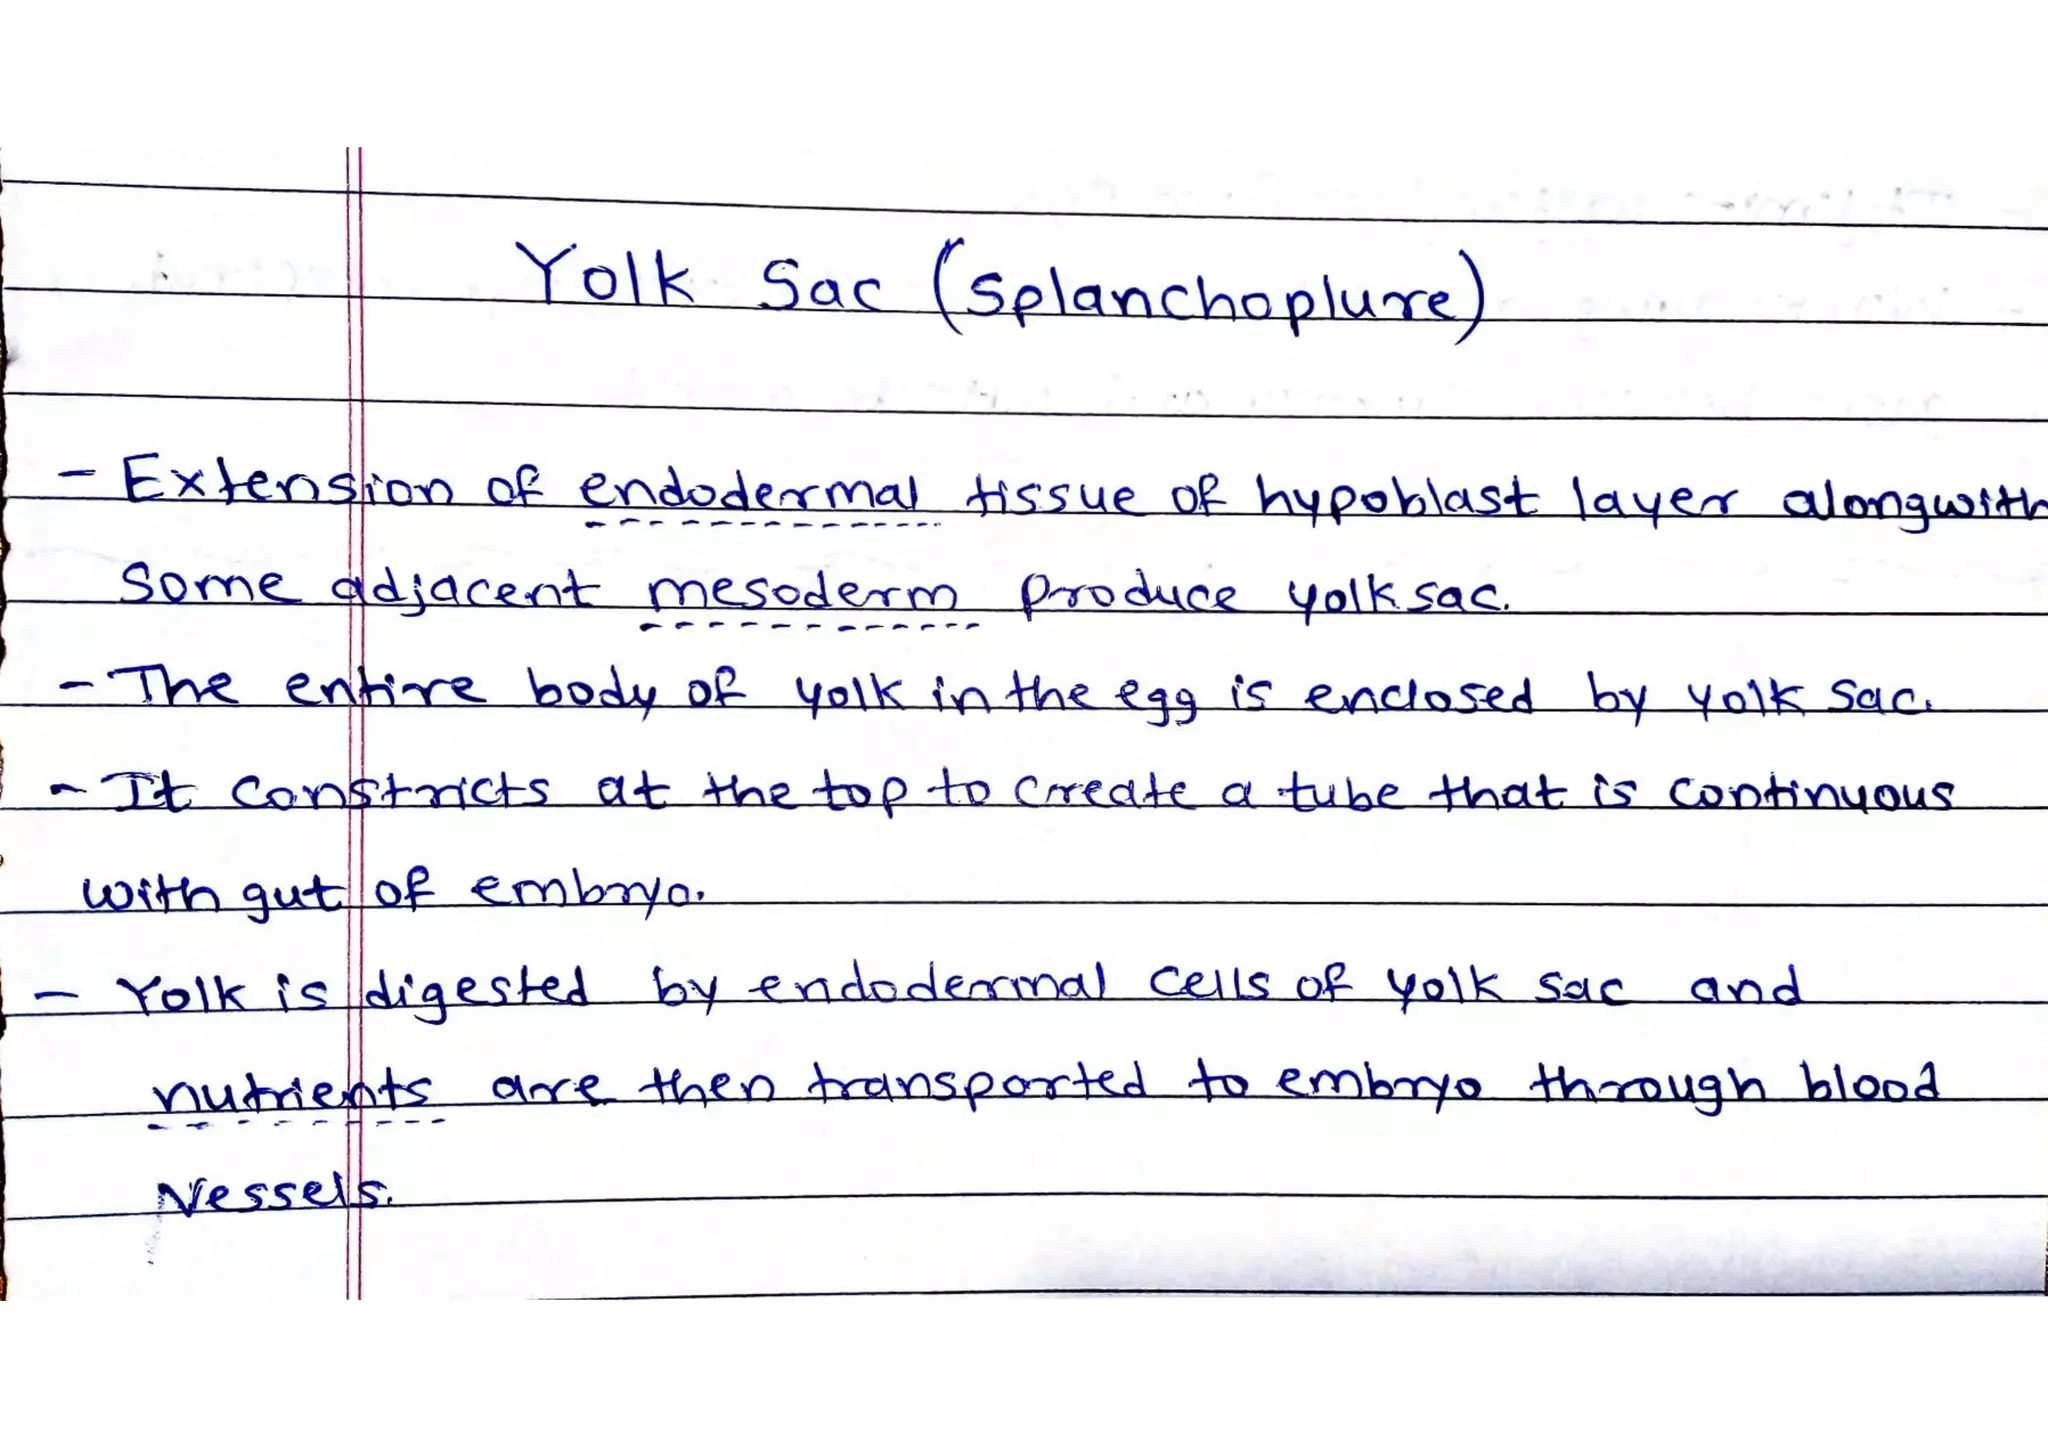 Yolk Sac (Splanchoplure)
- Extension of endodermal tissue of hypoblast layer alongwith
some adjacent mesoderm produce yolk sac.
- The entire body of yolk in the egg is enclosed by yolk sac.
- It constricts at the top to create a tube that is continuous
with gut of embryo.
- Yolk is digested by endodermal cells of yolk sac and
nutrients are then transported to embryo through blood
Vessels.